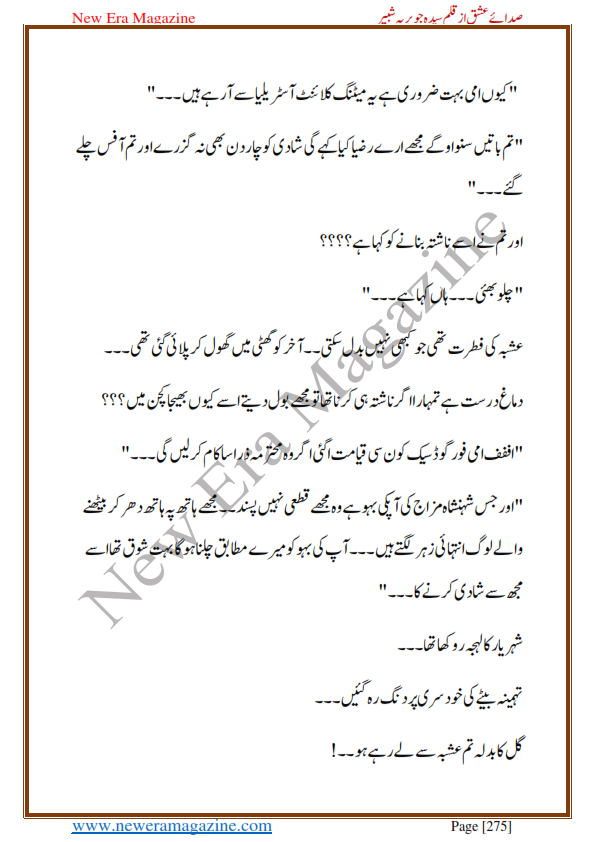 New Era Magazine
صدائے عشق از قلم سیدہ جویریہ شبیر
"کیوں امی بہت ضروری ہے یہ میٹنگ کلائنٹ آسٹریلیا سے آرہے ہیں۔۔۔"
"تم باتیں سنواوگے مجھے ارے رضیا کیا کہے گی شادی کو چار دن بھی نہ گزرے اور تم آفس چلے
گئے۔۔۔"
اور تم نے اسے ناشتہ بنانے کو کہا ہے؟؟؟؟
"چلو بھئی۔۔۔ہاں کہا ہے۔۔۔"
عشبہ کی فطرت تھی جو کبھی نہیں بدل سکتی۔۔آخر کو گھٹی میں گھول کر پلائی گئی تھی۔۔۔
دماغ درست ہے تمہارا اگر ناشتہ ہی کرنا تھا تو مجھے بول دیتے اسے کیوں بھیجا کچن میں؟؟؟
"اففف امی فور گوڈ سیک کون سی قیامت اگئی اگر وہ محترمہ ذرا سا کام کرلیں گی۔۔۔"
"اور جس شہنشاہ مزاج کی آپکی بہو ہے وہ مجھے قطعی نہیں پسند۔۔مجھے ہاتھ پہ ہاتھ دھر کر بیٹھنے
والے لوگ انتہائی زہر لگتے ہیں۔۔۔آپ کی بہو کو میرے مطابق چلنا ہوگا بہت شوق تھا اسے
مجھ سے شادی کرنے کا۔۔۔"
شہریار کا لہجہ روکھا تھا۔۔۔
تہمینہ بیٹے کی خود سری پر دنگ رہ گئیں۔۔۔
گل کا بدلہ تم عشبہ سے لے رہے ہو۔۔!
New Era Magazine
www.neweramagazine.com
Page [275]